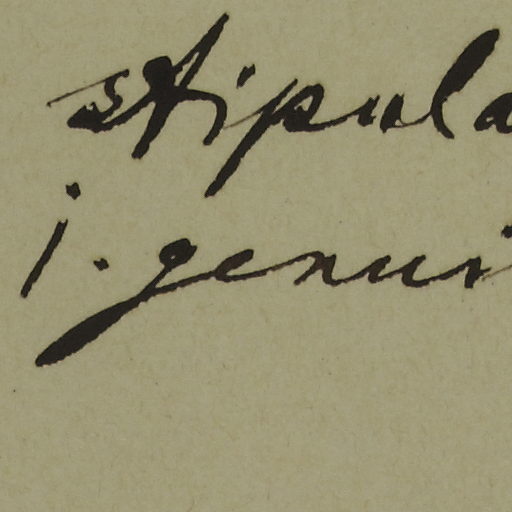 stipula
j. genui